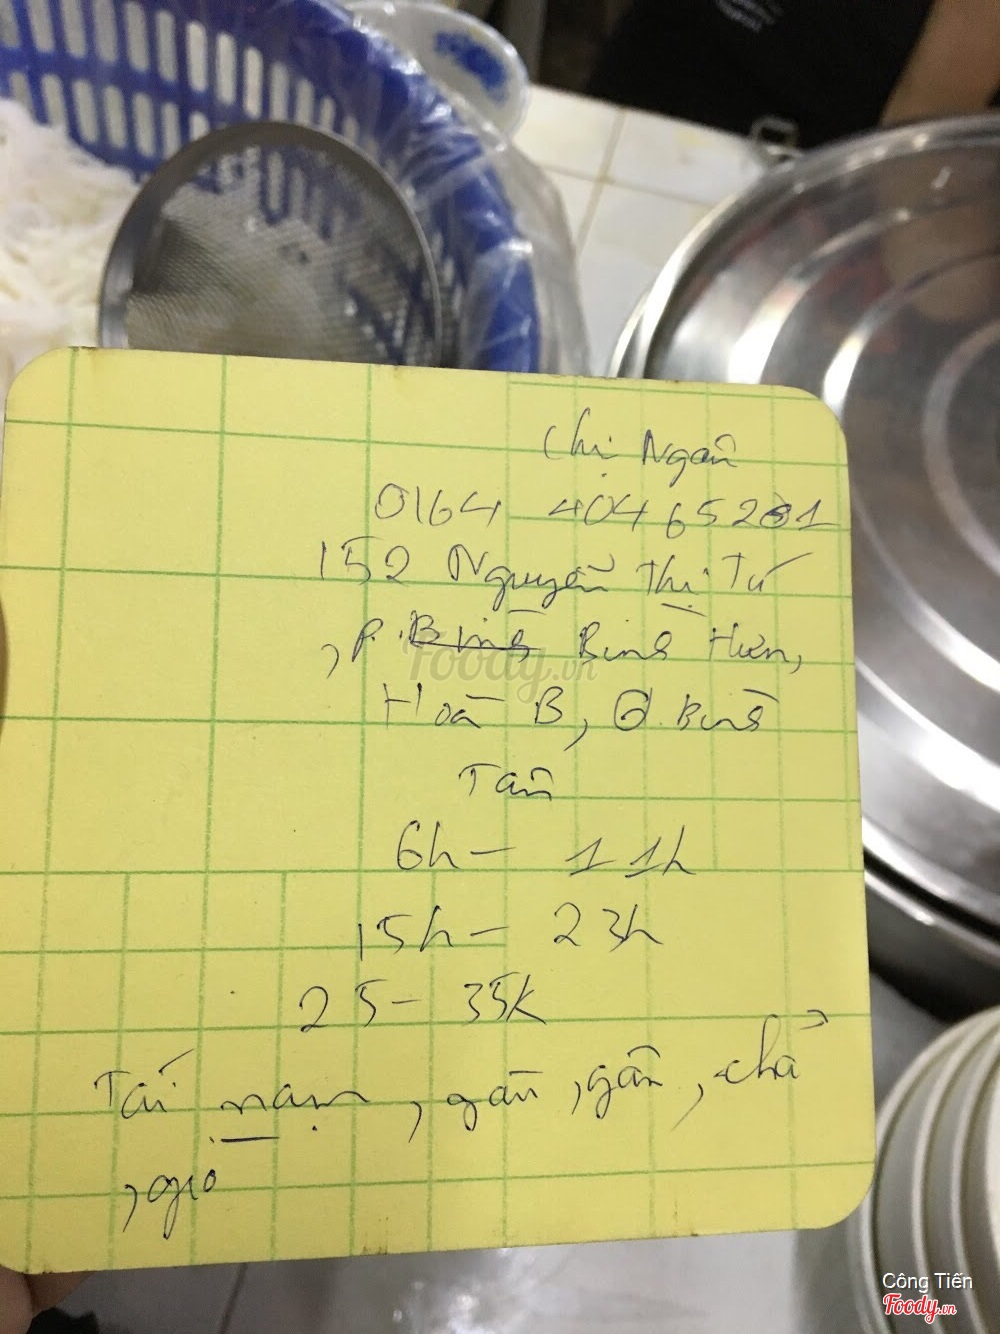 Chị Ngân
0164 4046 65281
152 Nguyễn Thị Tú
, P. Bình Bình Hưn,
Hoà B, Q. Bình
Tân
6h - 11h
15h - 23h
25 - 35K
Tái nạm, gầu, gân, chả
, giò
Foody.vn
Công Tiến
Foody.vn